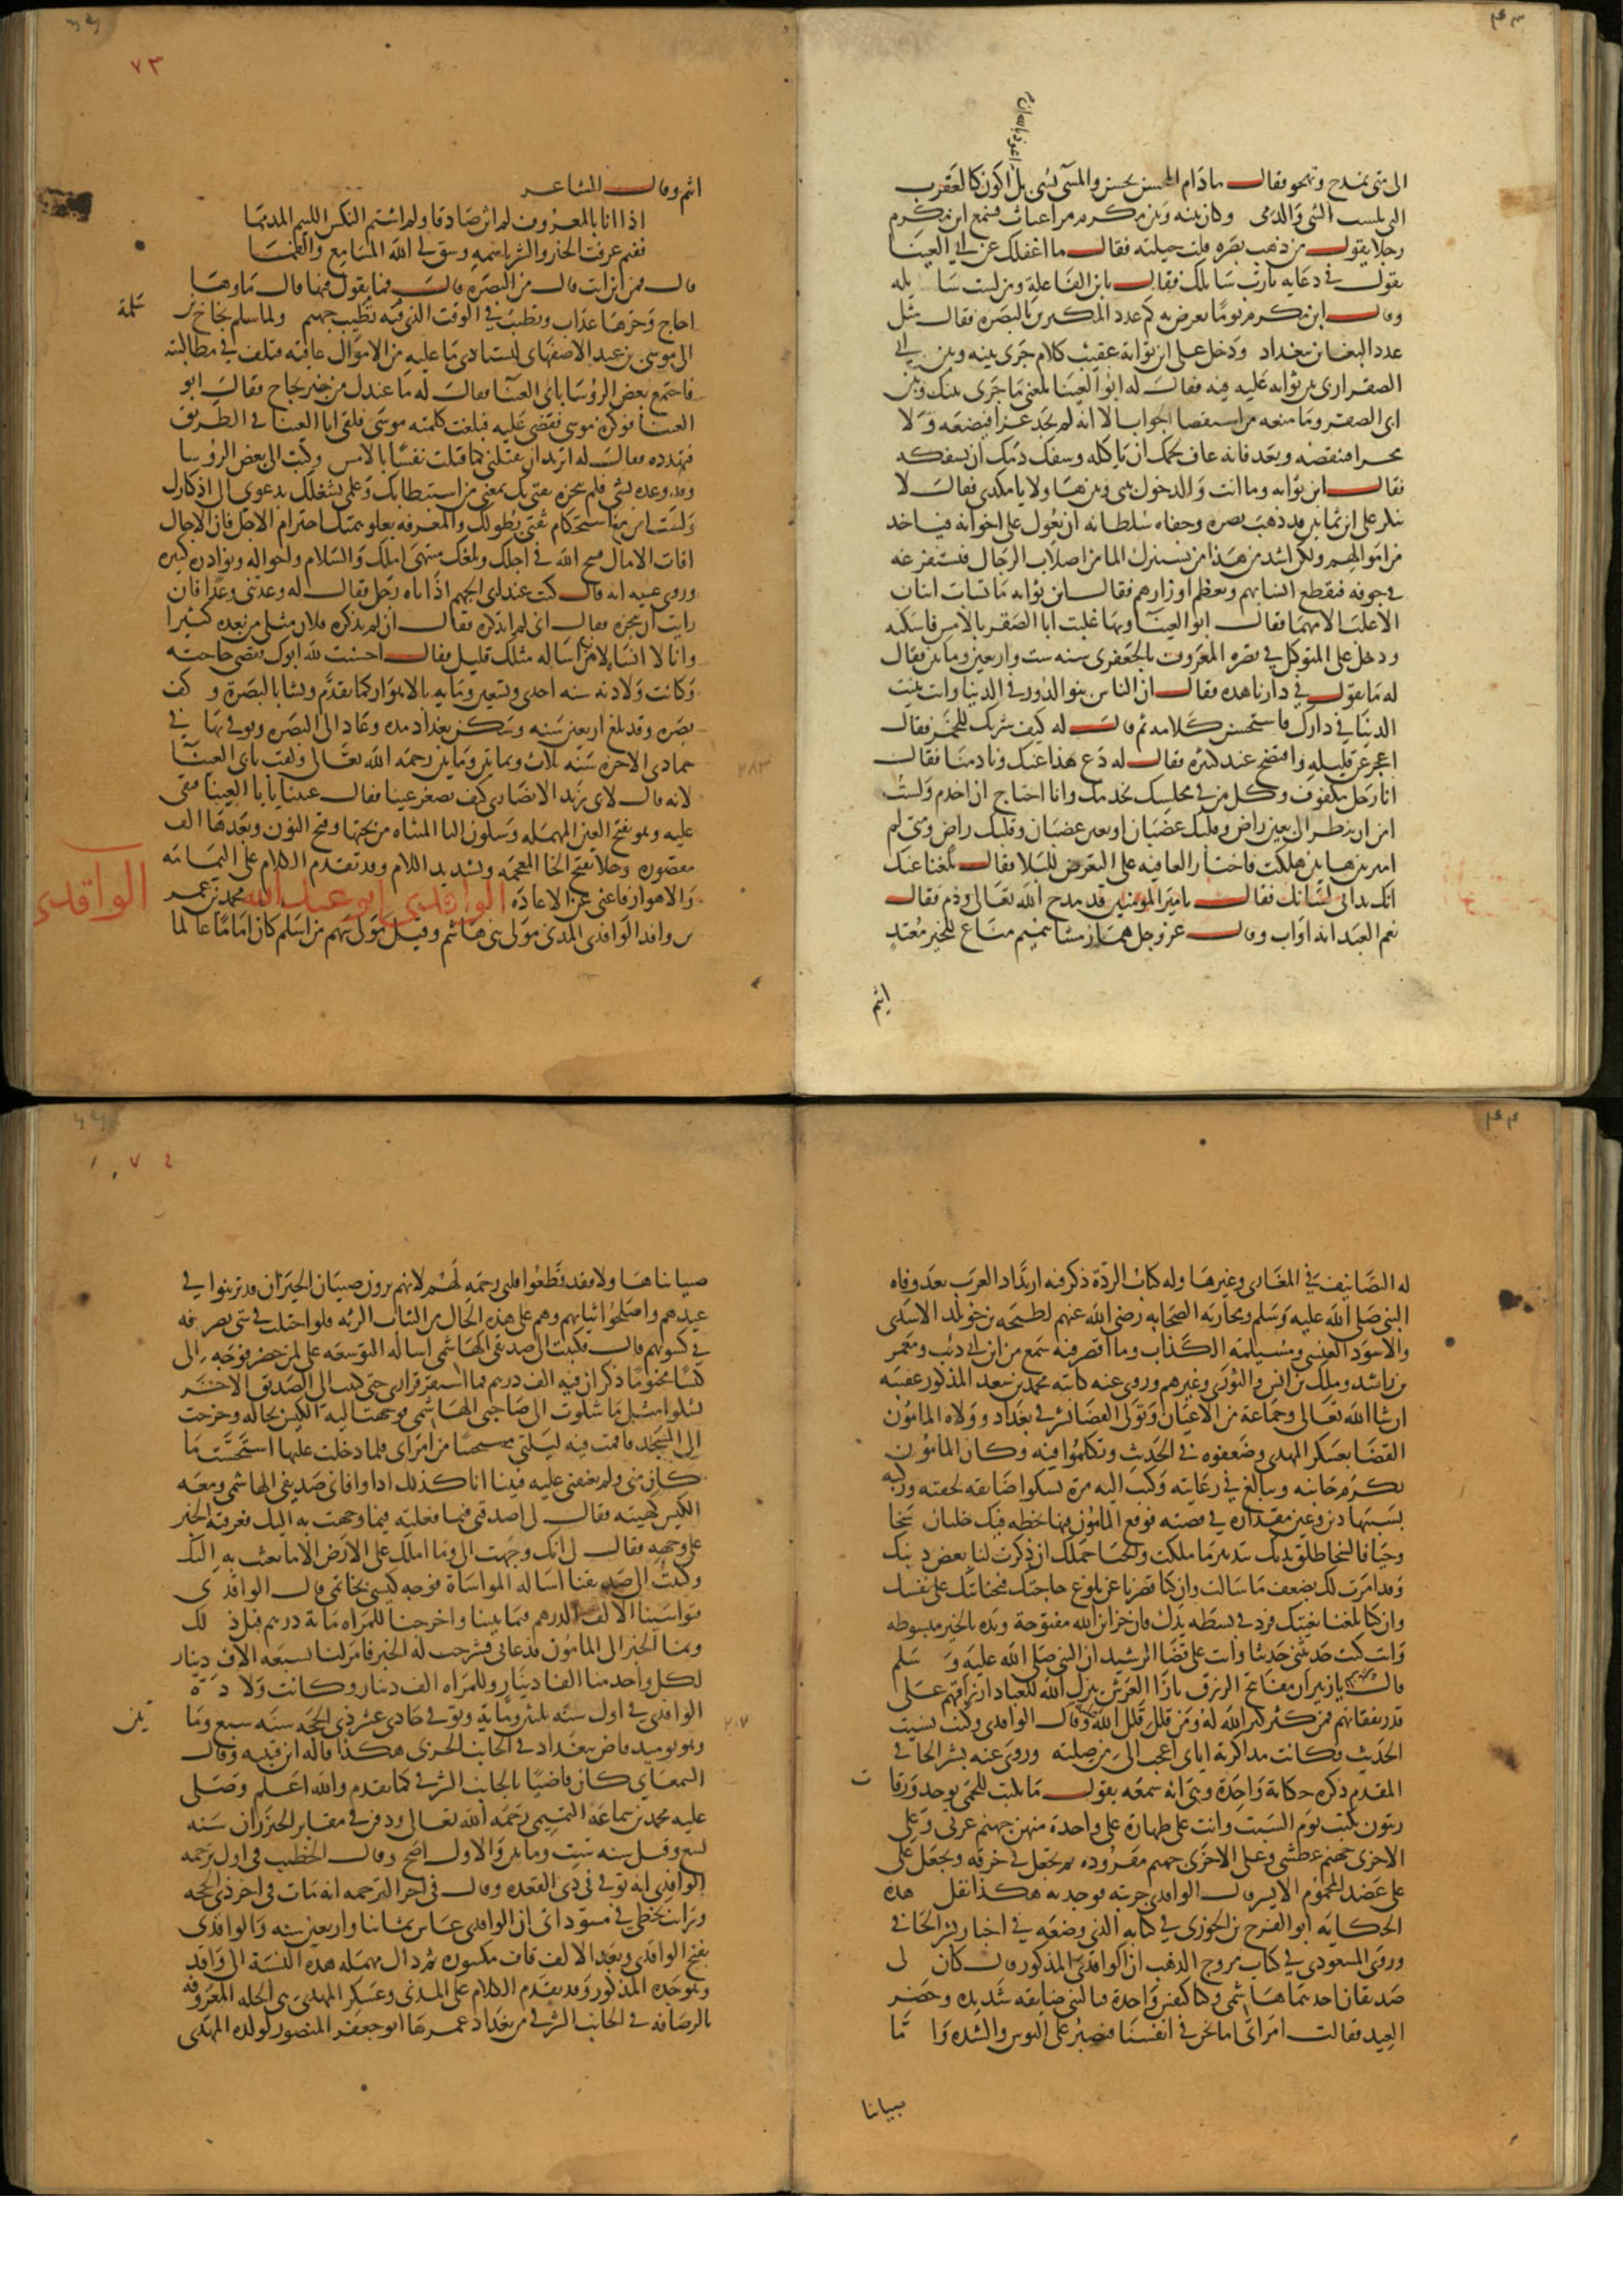 الى متى تمدح وتهجو فقال ما دام المحسن يحسن والمسي يسي بل اكون كالعقرب
التي تلسب النبي والذمي وكان بينه وبين ابن مكرم مداعبات فسمع ابن مكرم
رجلا يقول من ذهب بصره قلت حيلته فقال ما اغفلك عن ابي العينا
يقول في دعايه يا رب سايلك فقال يا بن الفاعلة ومن لست سايله
وقال ابن مكرم يوما يعرض به كم عدد المكدين بالبصره فقال مثل
عدد البغايين ببغداد ودخل على ابن ثوابة عقيب كلام جرى بينه وبين ابي
الصقر اربى ابن ثوابه عليه فيه فقال له ابو العينا بلغني ما جرى بينك وبين
ابي الصقر وما منعه من استقصا الجواب الا انه لم يجد عزا فيضعه ولا
مجدا فينقصه وبعد فانه عاف لحمك ان ياكله وسفك دمك ان يسفكه
فقال ابن ثوابه وما انت والدخول بيني وبين هـا ولا يا مكدي فقال لا
تنكر على ابن ثمانين قد ذهب بصره وجفاه سلطانه ان يعول على اخوانه فياخد
من اموالهم ولكن اشد من هذا من يستنزل الما من اصلاب الرجال فيستفرغه
في جوفه فيقطع انسابهم ويعظم اوزارهم فقال ابن ثوابه ما تساب اثنان
الا غلب الامهما فقال ابو العينا وبها غلبت ابا الصقر بالامس فاسكته
ودخل على المتوكل في قصره المعروف بالجعفري سنه ست واربعين ومايتين فقال
له ما يقول في دارنا هده فقال ان الناس بنوا الدور في الدنيا وانت بنيت
الدنيا في دارك فاستحسن كلامه ثم قال له كيف شربك للخمر فقال
اعجز عن قليله وافتضح عند كثره فقال له دع هذا عنك ونادمنا فقال
انا رجل مكفوف وكل من في مجلسك يخدمك وانا احتاج ان اخدم ولست
امن ان ينظر الى بعين راض وقلبك غضبان او بعين غضبان وقلبك راض ومتى لم
اميز بين هاذين هلكت فاختار العافيه على التعرض للبلا فقال بلغنا عنك
انك بدا في لسانك فقال يا مير المومنين قد مدح الله تعالى وذم فقال
نعم العبد انه اواب وقال عز وجل هماز مشا بنميم مناع للخير معتد
اثيم
٧٣
اثيم وقال الشاعر
اذا انا بالمعروف لم اثن صادقا ولم اشتم النكس اللييم المذمما
ففيم عرفت الخير والشر باسمه وشق لي الله المسامع والفمـا
قال فمن اين انت قال من البصره قال فما يقول فيها قال ماوها
اجاج وحرها عذاب وتطيب في الوقت الذي فيه تطيب جهنم ولما سلم نجاح بن
سلمة
الى موسى بن عبد الملك الاصفهاني ليستادي ما عليه من الاموال عاقبه فتلف في مطالبته
فاجتمع بعض الروسا بابي العينا فقال له ما عندك من خبر نجاح فقال ابو
العينا فوكزه موسى فقضى عليه فبلغت كلمته موسى فلقي ابا العينا في الطريق
فتهدده فقال له اتريد ان تقتلني كما قتلت نفسا بالامس وكتب الى بعض الروسا
وقد وعده بشي فلم ينجزه ثقتي بك تمنعني من استبطايك وعلمي بشغلك يدعوني الى اذكارك
ولست امن مع استحكام ثقتي بطولك والمعرفه بعلو همتك اخترام الاجل فان الاجال
افات الامال فسح الله في اجلك وبلغك منتهى املك والسلام واحواله ونوادره كثيره
وروى عنه انه قال كنت عند ابي الجهم اذ اتاه رجل فقال له وعدتني وعدا فان
رايت ان تنجزه فقال انى لم اذكره فقال ان لم تذكره فلان مثلي من تعده كثيرا
وانا لا انساه لان من اساله مثلك قليل فقال احسنت لله ابوك فقضى حاجته
وكانت ولادته سنه احدى وتسعين ومايه بالاهواز كما تقدم ونشا بالبصرة وكف
بصره وقد بلغ اربعين سنه وسكن بغداد مدة وعاد الى البصره وتوفي بها في
جمادى الاخره سنه ثلاث وثمانين ومايتين رحمه الله تعالى ولقب بابي العينا
٢٨٣
لانه قال لابي زيد الانصارى كيف تصغر عينا فقال عيينا يا ابا العينا فبقي
عليه وهو بفتح العين المهمله وسكون اليا المثناه من تحتها وفتح النون وبعدها الف
مقصوره وخلاد بفتح الخا المعجمه وتشديد اللام وقد تقدم الكلام على اليمامه
والاهواز فاغنى عن الاعاده الواقدي ابو عبد الله محمد بن عمر
الواقدي
بن واقد الواقدي المدني مولى بني هاشم وقيل مولى سهم من اسلم كان اماما عالما
له التصانيف في المغازى وغيرها وله كتاب الردة ذكر فيه ارتداد العرب بعد وفاه
النبي صلى الله عليه وسلم ومحاربه الصحابه رضي الله عنهم لطليحه بن خويلد الاسدى
والاسود العنسي ومسيلمه الكذاب وما اقصر فيه سمع من ابن ابي ذئب ومعمر
بن راشد ومالك بن انس والثورى وغيرهم وروى عنه كاتبه محمد بن سعد المذكور عقيبه
ان شا الله تعالى وجماعة من الاعيان وتولى القضا بشرقي بغداد وولاه المامون
القضا بعسكر المهدى وضعفوه في الحديث وتكلموا فيه وكان المامون
يكرم جانبه ويبالغ في رعايته وكتب اليه مرة يشكوا ضايقه لحقته وركبه
بسببها دين وعين مقداره في قصته فوقع المامون فيها بخطه فيك خلتان سخا
وحيا فالسخا اطلق يديك بتبذير ما ملكت والحيا حملك ان ذكرت لنا بعض دينك
وقد امرت لك بضعف ما سالت وان كنا قصرنا عن بلوغ حاجتك فبجنايتك على نفسك
وان كنا بلغنا بغيتك فزد في بسطه يدك فان خزاين الله مفتوحة ويده بالخير مبسوطه
وانت كنت حدثتني حديثا وانت على قضا الرشيد ان النبي صلى الله عليه وسلم
قال للزبير يا زبير ان مفاتح الرزق بازا العرش ينزل الله للعباد ارزاقهم على
قدر نفقاتهم فمن كثر كثر الله له ومن قلل قلل الله عليه وقال الواقدى وكنت نسيت
الحديث فكانت مذاكرته اياى اعجب الى من صلته وروى عنه بشر الحافي
المقدم ذكره حكاية واحدة وهي انه سمعه يقول ما يكتب للحمى يوخذ ورقات
زيتون يكتب يوم السبت وانت على طهارة على واحدة منهن جهنم غرثى وعلى
الاخرى جهنم عطشى وعلى الاخرى جهنم مقروره ثم تجعل في خرقه وتجعل على
على عضد المحموم الايسر قال الواقدى جربته فوجدته هكذا نقل هذه
الحكايه ابو الفرج بن الجوزى في كتابه الذي وضعه في اخبار بشر الحافي
وروى المسعودي في كتاب مروج الذهب ان الواقدي المذكور قال كان لى
صديقان احدهما هاشمي وكنا كنفس واحدة فنالتني ضايقه شديده وحضر
العيد فقالت امراتي اما نحن في انفسنا فنصبر على البوس والشده واما
صبياننا
٧٤
صبياننا هـا ولا فقد قطعوا قلبي رحمه لهم لانهم يرون صبيان الجيران قد تزينوا في
عيدهم واصلحوا ثيابهم وهم على هذه الحال من الثياب الرثه فلو احتلت في شي يصرفه
في كسوتهم قال فكتبت الى صديقي الهاشمي اساله التوسعه على لما حضر فوجه الى
كيسا مختوما ذكر ان فيه الف درهم فما استقر قراري حتى كتب الي الصديق الاخر
يشكوا مثل ما شكوت الى صاحبي الهاشمي فوجهت اليه الكيس بحاله وخرجت
الى المسجد فاقمت فيه ليلتي مستحييا من امراتى فلما دخلت عليها استحسنت ما
كان مني ولم تعنفني عليه فبينا انا كذلك اذ وافاني صديقي الهاشمي ومعه
الكيس كهيئته فقال لى اصدقني فيما فعلته فيما وجهت به اليك فعرفته الخبر
على وجهه فقال لى انك وجهت الي وما املك على الارض الا ما بعثت به اليك
وكتبت الى صديقنا اساله المواساة فوجه كيسي بخاتمي قال الواقدى
فتواسينا الالف الدرهم فيما بيننا واخرجنا للمراه مائة درهم قبل ذلك
ونما الخبر الى المامون فدعاني فشرحت له الخبر فامر لنا بسبعه الاف دينار
لكل واحد منا الفا دينار وللمراه الف دينار وكانت ولادة
الواقدى في اول سنه ثلثين وماية وتوفي حادى عشر ذي الحجه سنه سبع ومايتين
٢٠٧
وهو يوميد قاض ببغداد في الجانب الغربى هكذا قاله ابن قتيبه وقال
السمعاني كان قاضيا بالجانب الشرقي كما تقدم والله اعلم وصلى
عليه محمد بن سماعة التميمي رحمه الله تعالى ودفن في مقابر الخيزران سنه
تسع وقيل سنه ست ومايتين والاول اصح وقال الخطيب في اول ترجمه
الواقدى انه توفي في ذى القعده وقال في اخر الترجمه انه مات في اخر ذي الحجه
ورايت بخطي في مسوداتى ان الواقدى عاش ثمانيا واربعين سنه والواقدى
بفتح الواو وبعد الالف قاف مكسوره ثم دال مهمله هذه النسبه الى واقد
وهو جده المذكور وقد تقدم الكلام على المدني وعسكر المهدى هي المحله المعروفه
بالرصافه في الجانب الشرقي من بغداد عمرها ابو جعفر المنصور لولده المهدى